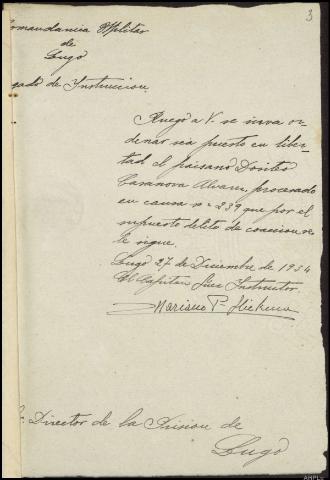 3
Comandancia Militar
de
Lugo
gado de Instruccion.
Ruego a V. se sirva or-
denar sea puesto en liber-
tad el paisano Dositeo
Casanova Alvarez, procesado
en causa nº 239 que por el
supuesto delito de coaccion se
le sigue.
Lugo 27 de Diciembre de 1934
El Capitan Juez Instructor.
Mariano
Director de la Prision de
Lugo